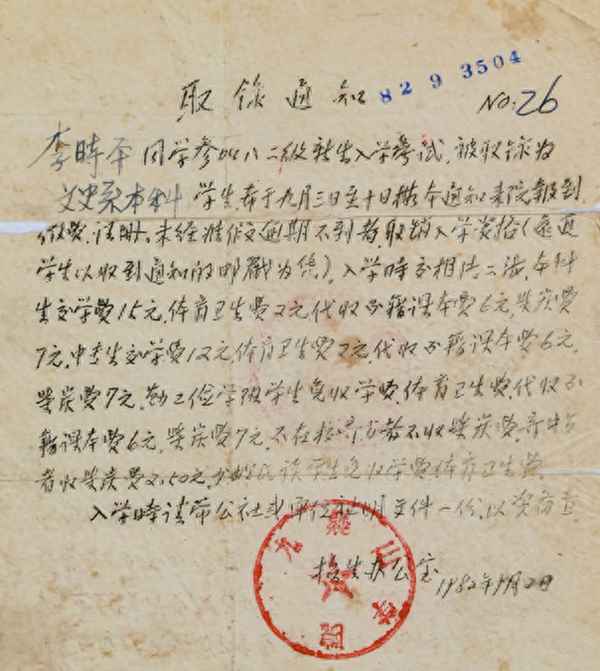 取錄通知
82 9 3504
No:26
李时平同学参加八二级新生入学考试,被取録为
文史系本科学生,希于九月三日至十日携本通知来院報到
缴费,註册,未经准假逾期不到者取销入学资格(遠道
学生以收到通知的邮戳为凭),入学時交相片二張,本科
生交学費15元,体育卫生費2元代收书籍课本費6元,柴炭費
7元,中专生交学費12元,体育卫生費2元,代收书籍課本費6元,
柴炭費7元,勤工俭学班学生免收学費,体育卫生費,代收书
籍课本費6元,柴炭費7元,不在校 者不收柴炭費,
者收柴炭費2.50元,少数民族学生免收学費体育卫生費。
入学時请带公社或单位証明文件一份,以资备查
招生办公室
1982年9月2日